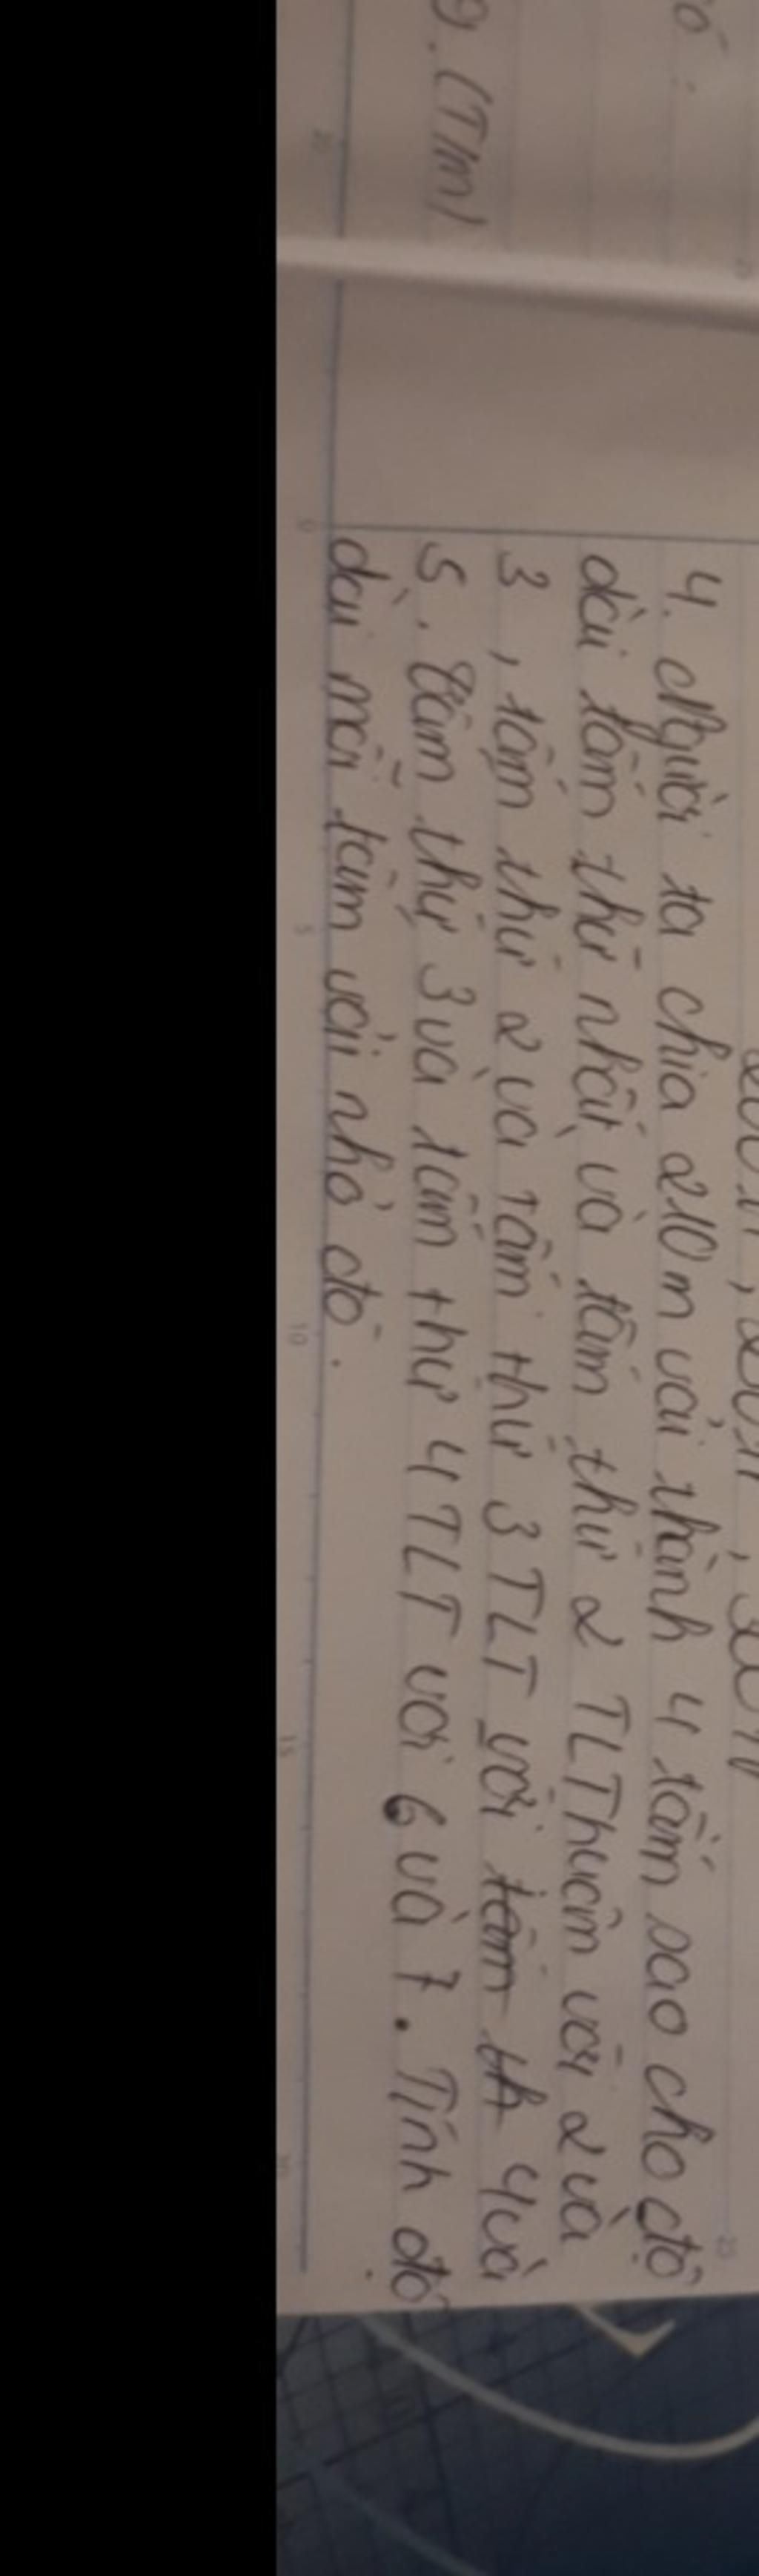 9. (T/m)
4. Người ta chia 210 m vải thành 4 tấm sao cho độ
dài tấm thứ nhất và tấm thứ 2 TLThuận với 2 và
3, tấm thứ 2 và tấm thứ 3 TLT với tấm th 4 và
5. Tấm thứ 3 và tấm thứ 4 TLT với 6 và 7. Tính độ
dài mỗi tấm vải nhỏ đó.